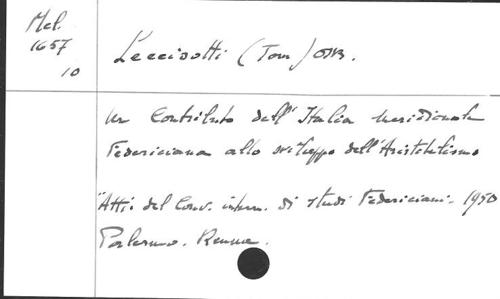 Mel.
1657
10
Leccisotti (Tom) OSB.
Un Contributo dell'Italia Meridionale
Federiciana allo sviluppo dell'Aristotelismo
"Atti del Conv. intern. di studi Federiciani. 1950
Palermo. Renna.